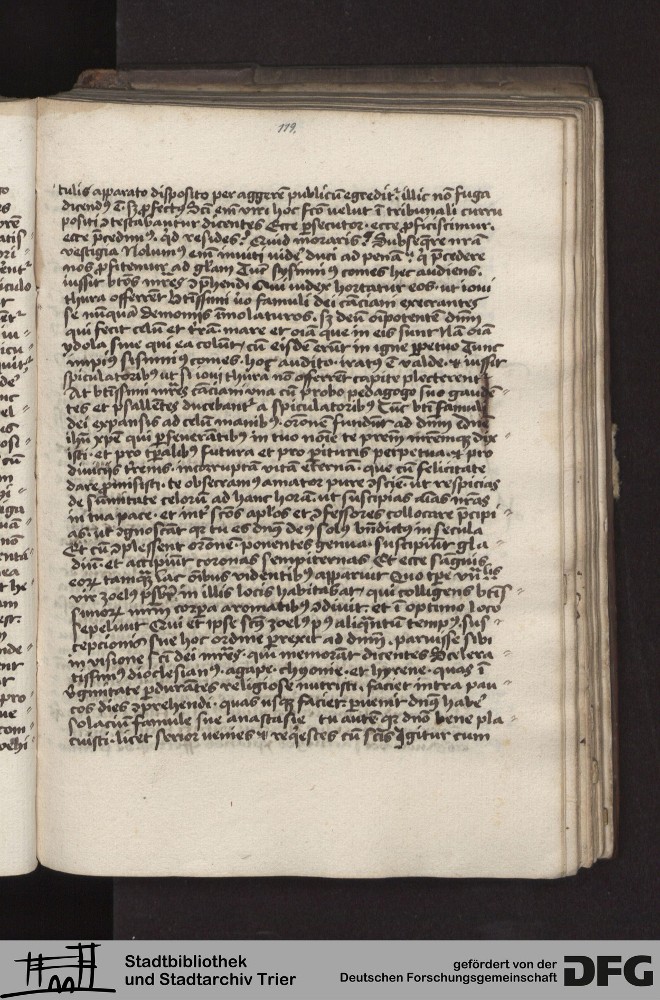 119.
tulis apparato disposito per aggerē publicū egredit᷑. illic nō fuga
dicendꝰ ē sꝫ ꝓfectꝰ Sc̄i em̄ viri hoc fc̄o velut ī tribunali curru
positi ꝯtestabantur dicentes Ecce ꝑsecutor. ecce ꝓficiscimur.
ecce p̄cedimꝰ. qd resides? Quid moraris? Subseq̄re nr̄a
vestigia Nolumꝰ em̄ inuiti vide᷑ duci ad penā. p̄cedere
nos ꝓfitemur ad gl̄am Tūc sysinniꝰ comes hec audiens.
iussit bt̄os mr̄es ꝯp̄hendi Qui iudex hortatur eos. ut ioui
thura offerrēt Bt̄issimi uo famuli dei cāciani execrantes
se nūquā demoniis īmolaturos. sꝫ deū oīpotentē dn̄m
qui fecit celū et trā. mare et oīa que in eis sunt Nā oīa
ydola siue qui ea colūt. cū eisdē erūt in igne ꝑpetuo Tunc
impiꝰ sisinniꝰ comes. hoc audito. iratꝰ ē valde. et iussit
spiculatoribꝰ ut si ioui thura nō offerrēt capite plecterent᷑
At bt̄issimi mr̄es cāciani vna cū probo pedagogo suo gaudē
tes et psallētes ducebant᷑ a spiculatoribꝰ Tūc bt̄i famuli
dei expansis ad celū manibꝰ. or̄onē fundūt ad dn̄m
ihū xp̄e qui ꝑseuerātibꝰ in tuo noīe te prem̄ mr̄emqꝫ dix
isti. et pro tp̄alibꝰ futura et pro pituris perpetua. et pro
diuicijs trenis. incorruptā vitā eternā. que cū felicitate
dare ꝓmisisti. te obsecramꝰ amator pure ꝯscie. ut respicias
de sūmitate celorū ad hanc horā. ut suscipias aīas nr̄as
in tua pace. et int᷑ sc̄os ap̄los et ꝯfessores collocare p̄cipi
as. ut ꝯgnoscāt qꝛ tu es dn̄s deꝰ solꝰ bn̄dictꝰ in secula
Et cū ꝯplessent or̄onē. ponentes genua. suscipiūt gla
diū. et accipiūt coronas sempiternas Et ecce sāguis
eoꝝ tamqꝫ lac om̄ibus videntibꝰ apparuit Quo tp̄e
vir zoelꝰ p̄sbr̄ in illis locis habitabat. qui colligens bt̄is
simoꝝ mr̄m corꝑa aromatibꝰ ꝯdiuit. et ī optimo loco
sepeliuit Qui et ipse sc̄us zoelꝰ pꝰ aliq̄ntū tempꝰ. sus
cepcionis sue hoc ordine ꝑrexit ad dn̄m. paruisse sibi
in visione sc̄i dei mr̄es. qui memorāt dicentes Scelera
tissimꝰ dioclesianꝰ. agape. chyonie. et hyrene. quas ī
v̓ginitate ꝑdurātes religiose nutristi. faciet intra pau
cos dies ꝯprehendi. quas usqꝫ faciet. ꝑuenit dn̄s habe᷑
solaciū famule sue anastasie tu autē qꝛ dn̄o bene pla
cuisti. licet serior venies et reqͥestes cū sc̄is Igitur cum
Stadtbibliothek
und Stadtarchiv Trier
gefördert von der
Deutschen Forschungsgemeinschaft
DFG